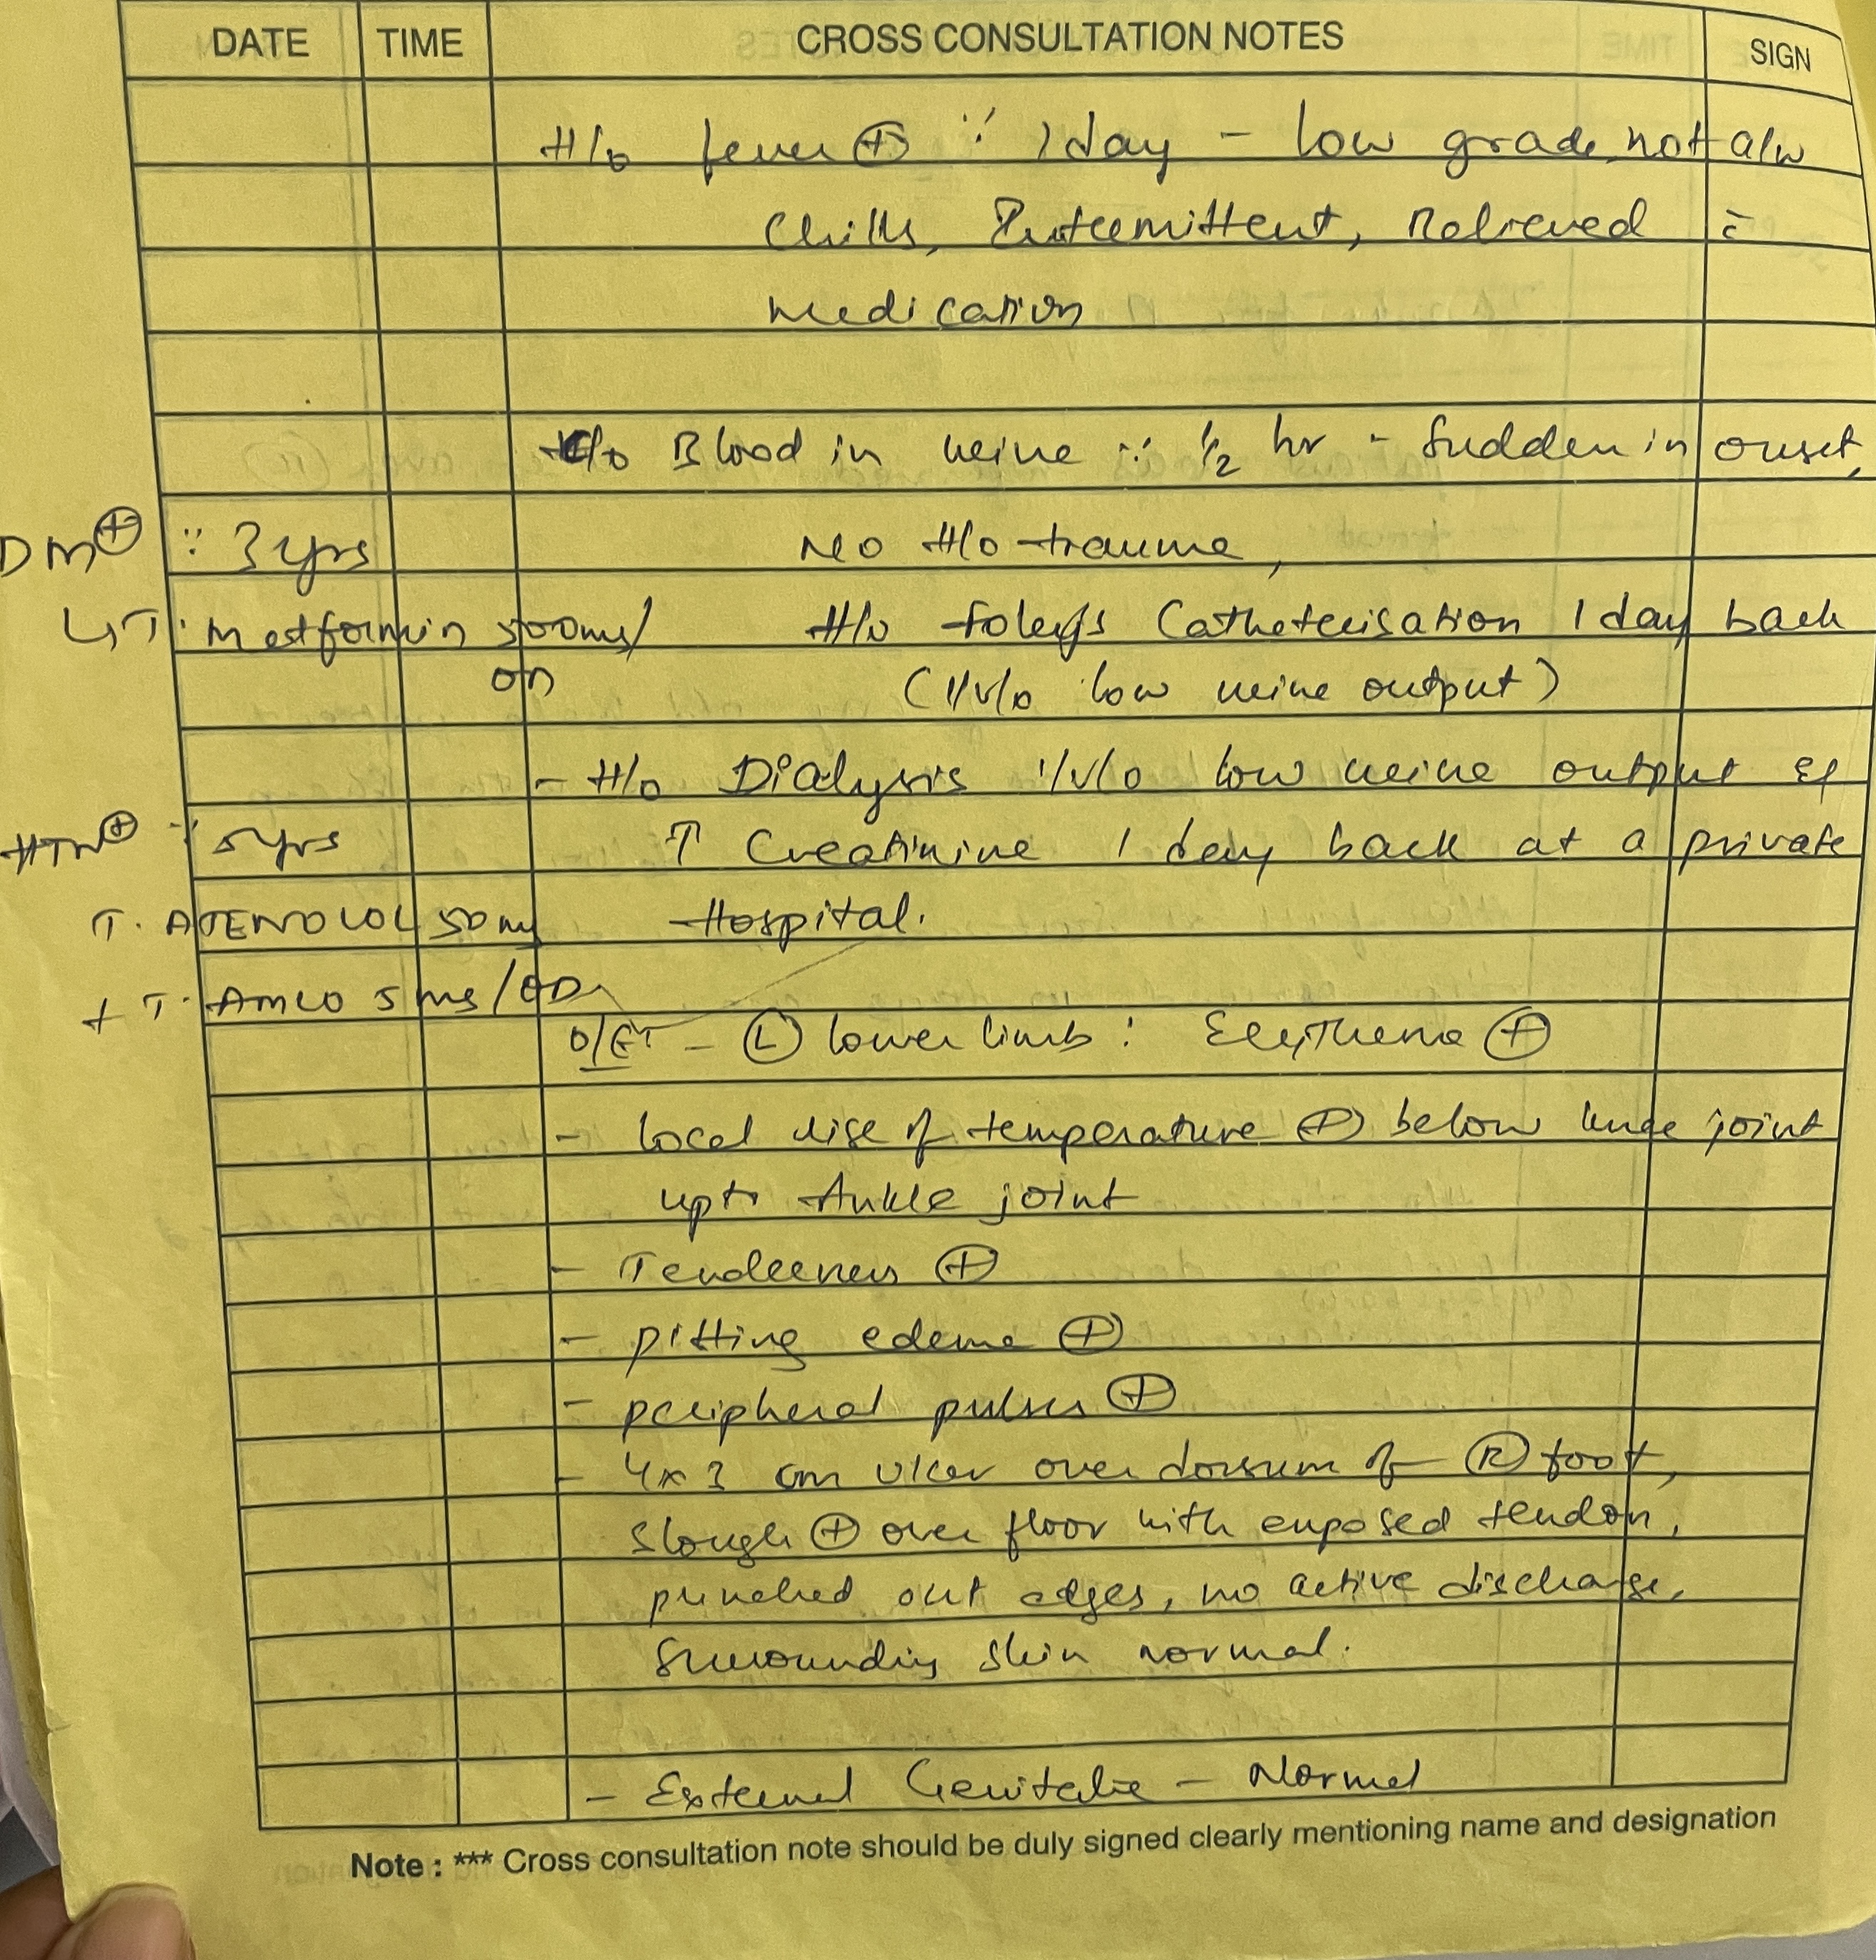 DATE TIME CROSS CONSULTATION NOTES SIGN
H/o fever ⊕ ∵ 1 day - low grade, not a/w
chills, Intermittent, Relieved c̄
medication
C/o Blood in urine ∵ 1/2 hr - Sudden in onset,
DM ⊕ ∵ 3 yrs
No H/o trauma,
↳ T. Metformin 500mg/
OD
H/o Foley's Catheterisation 1 day back
(i/v/o low urine output)
- H/o Dialysis i/v/o low urine output &
HTN ⊕ ∵ 5 yrs
↑ Creatinine 1 day back at a private
T. ATENOLOL 50 mg
Hospital.
+ T. AMLO 5 mg/OD
O/E - Ⓛ lower limb : Erythema ⊕
- local rise of temperature ⊕ below knee joint
upto Ankle joint
- Tenderness ⊕
- pitting edema ⊕
- peripheral pulses ⊕
- 4x3 cm ulcer over dorsum of Ⓡ foot,
slough ⊕ over floor with exposed tendon,
punched out edges, no active discharge,
surrounding skin normal.
- External Genitalia - Normal
Note : *** Cross consultation note should be duly signed clearly mentioning name and designation